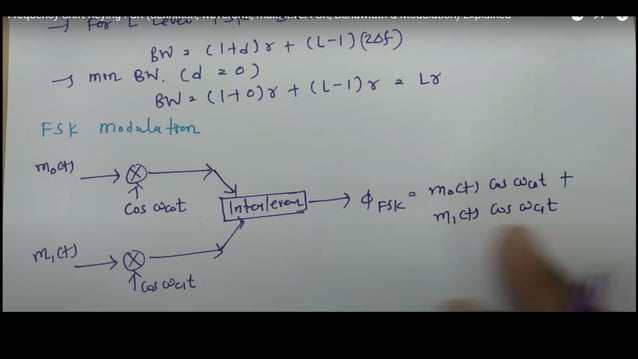 → For L Level FSK
BW = (1+d)r + (L-1)(2Δf)
→ min BW. (d = 0)
BW = (1+0)r + (L-1)r = Lr
FSK modulation
m₀(t)
cos ω₀t
Interleaver
ϕ_FSK = m₀(t) cos ωc₀t +
m₁(t) cos ωc₁t
m₁(t)
cos ωc₁t